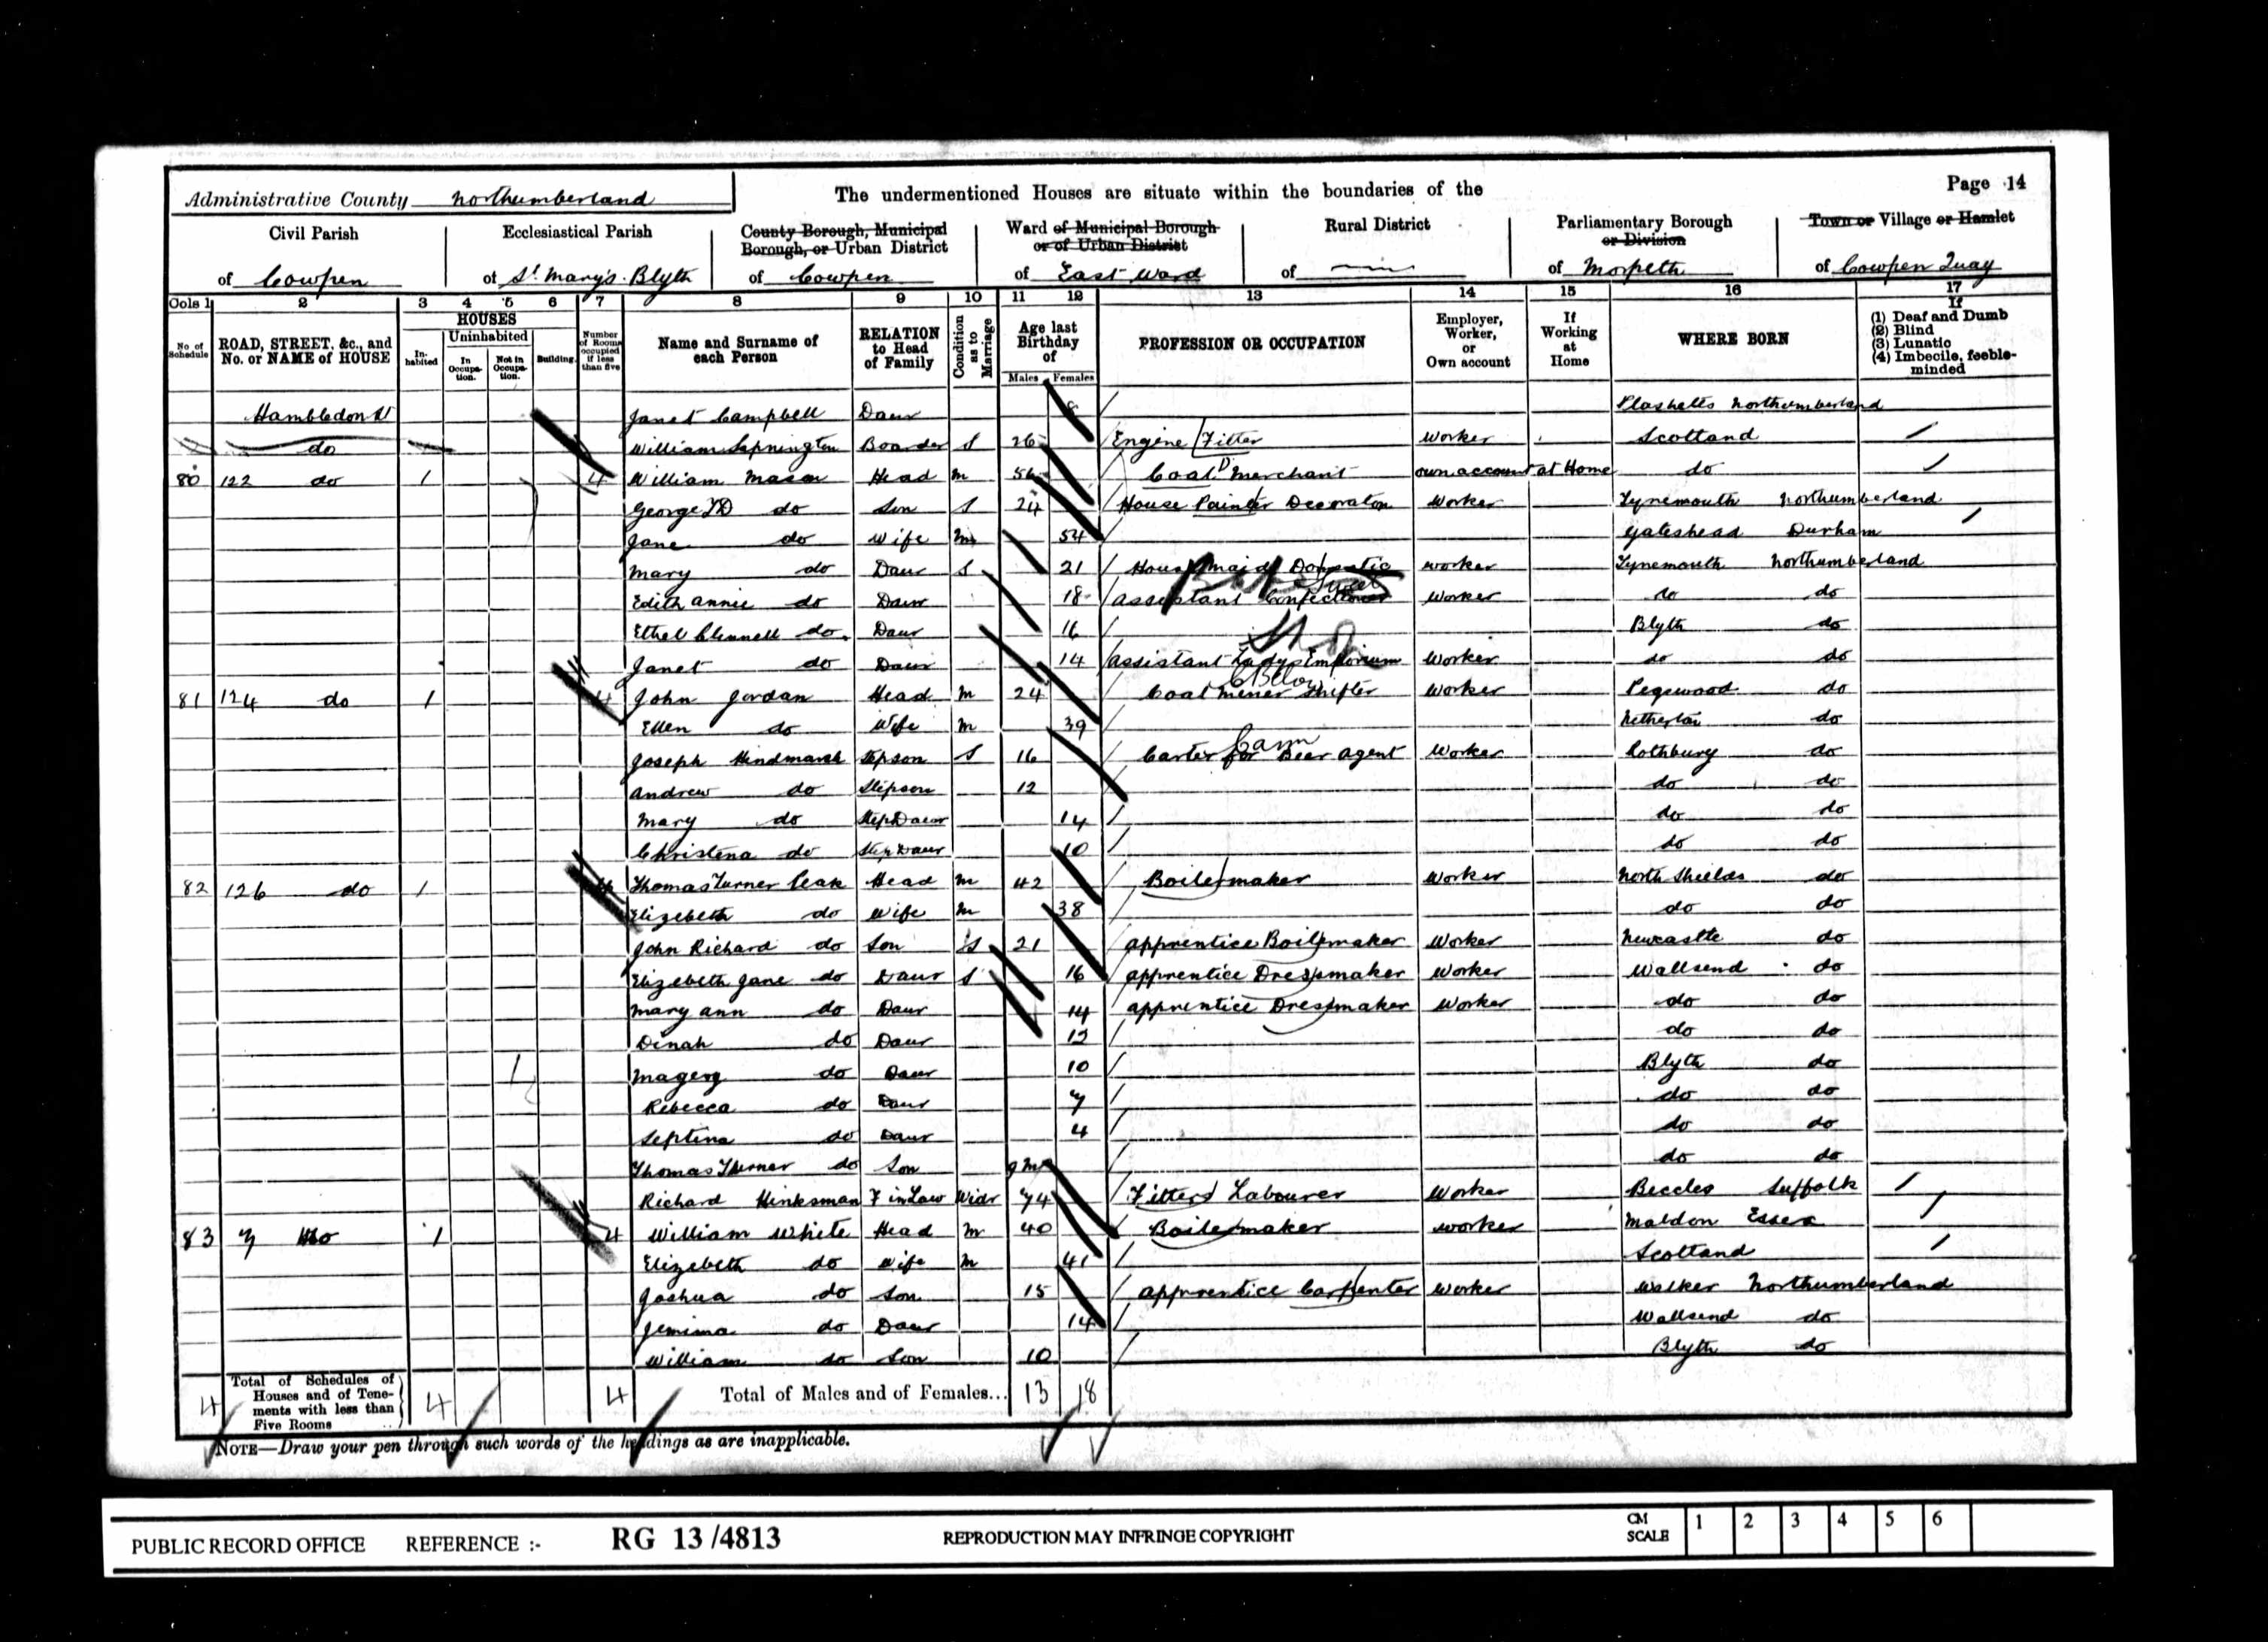 Administrative County Northumberland The undermentioned Houses are situate within the boundaries of the Page 14
Civil Parish of Cowpen
Ecclesiastical Parish of St. Mary's Blyth
County Borough, Municipal Borough, or Urban District of Cowpen
Ward of Municipal Borough or of Urban District of East Ward
Rural District of
Parliamentary Borough or Division of Morpeth
Town or Village or Hamlet of Cowpen Quay
Cols 1 2 3 4 5 6 7 8 9 10 11 12 13 14 15 16 17
No of Schedule
ROAD, STREET, &c., and No. or NAME of HOUSE
HOUSES
Inhabited
Uninhabited
In Occupation.
Not in Occupation.
Building
Number of Rooms occupied if less than five
Name and Surname of each Person
RELATION to Head of Family
Condition as to Marriage
Age last Birthday of
Males Females
PROFESSION OR OCCUPATION
Employer, Worker, or Own account
If Working at Home
WHERE BORN
If
(1) Deaf and Dumb
(2) Blind
(3) Lunatic
(4) Imbecile, feeble-minded
Hambledon St Janet Campbell Daur Plashetts Northumberland
do William Boarder S 26 Engine Fitter Worker Scotland
80 122 do 1 4 William Mason Head M 56 Coal Merchant own account at Home do
George do Son S 24 House Painter Decorator Worker Tynemouth Northumberland
Jane do Wife M 54 Gateshead Durham
Mary do Daur S 21 House maid Domestic worker Tynemouth Northumberland
Edith Annie do Daur 18 Assistant Confectioner Worker do do
Ethel Clennell do Daur 16 Blyth do
Janet do Daur 14 Assistant Ladys Emporium Worker do do
81 124 do 1 4 John Jordan Head M 24 Coal Miner Shifter Worker Pegswood do
Ellen do Wife M 39 Netherton do
Joseph Hindmarsh Stepson S 16 Carter for Beer Agent Worker Rothbury do
Andrew do Stepson 12 do do
Mary do Step Daur 14 do do
Christena do Step Daur 10 do do
82 126 do 1 4 Thomas Turner Peak Head M 42 Boilermaker Worker North Shields do
Elizebeth do Wife M 38 do do
John Richard do Son S 21 apprentice Boilermaker Worker Newcastle do
Elizebeth Jane do Daur S 16 apprentice Dressmaker Worker Wallsend do
Mary Ann do Daur 14 apprentice Dressmaker Worker do do
Dinah do Daur do do
Magery do Daur 10 Blyth do
Rebecca do Daur 7 do do
Septina do Daur 4 do do
Thomas Turner do Son 9 m do do
Richard Hinksman F in Law Widr 74 Fitters Labourer Worker Beccles Suffolk
83 7 do 1 4 William White Head M 40 Boilermaker Worker Maldon Essex
Elizebeth do Wife M 41 Scotland
Joshua do Son 15 apprentice Carpenter Worker Walker Northumberland
Jemima do Daur 14 Wallsend do
William do Son 10 Blyth do
4 Total of Schedules of Houses and of Tenements with less than Five Rooms 4 4 Total of Males and of Females... 13 18
NOTE—Draw your pen through such words of the headings as are inapplicable.
PUBLIC RECORD OFFICE REFERENCE :- RG 13/4813 REPRODUCTION MAY INFRINGE COPYRIGHT CM SCALE 1 2 3 4 5 6